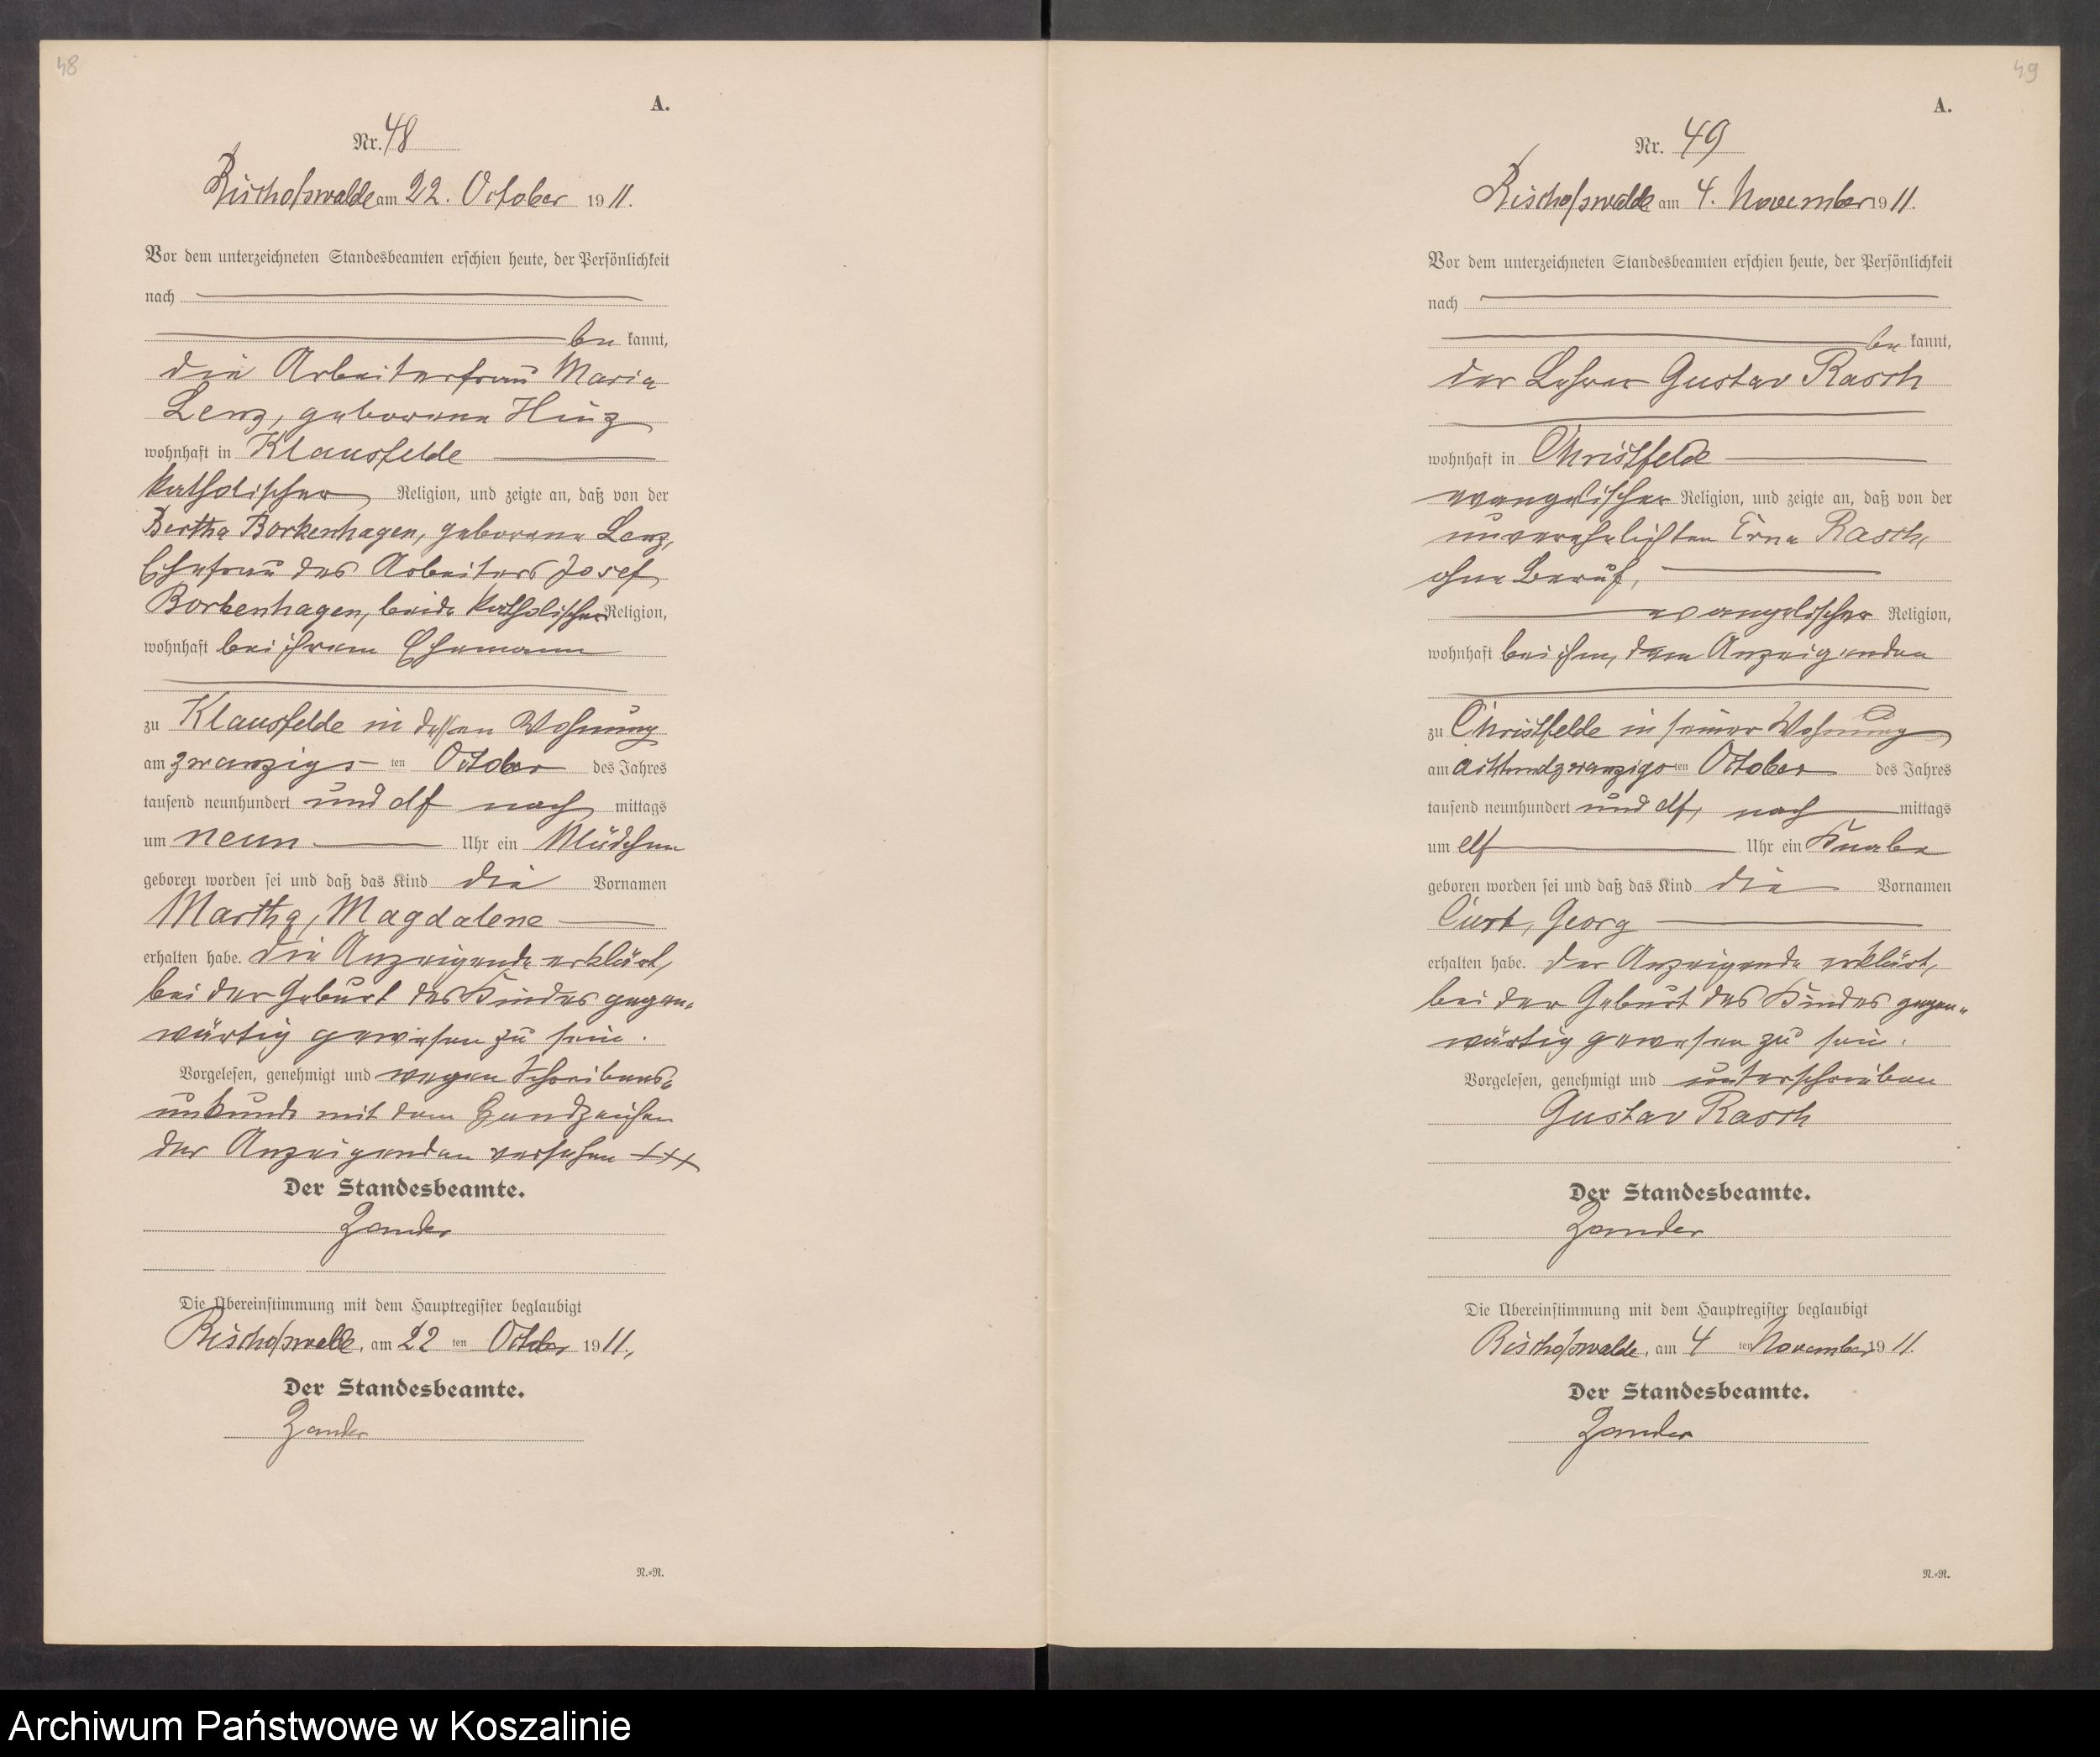 48
A.
Nr. 48
Bischofswalde am 22. October 1911.
Vor dem unterzeichneten Standesbeamten erschien heute, der Persönlichkeit
nach
be kannt,
die Arbeiterfrau Maria
Lenz, geborene Hinz
wohnhaft in Klausfelde
katholischer Religion, und zeigte an, daß von der
Bertha Borkenhagen, geborene Lenz,
Ehefrau des Arbeiters Josef
Borkenhagen, beide katholischer Religion,
wohnhaft bei ihrem Ehemann
zu Klausfelde in dessen Wohnung
am zwanzigs ten October des Jahres
tausend neunhundert und elf nach mittags
um neun Uhr ein Mädchen
geboren worden sei und daß das Kind die Vornamen
Martha, Magdalene
erhalten habe. Die Anzeigende erklärt,
bei der Geburt des Kindes gegen-
wärtig gewesen zu sein.
Vorgelesen, genehmigt und wegen Schreibens-
unkunde mit dem Handzeichen
der Anzeigenden versehen +++
Der Standesbeamte.
Zander
Die Übereinstimmung mit dem Hauptregister beglaubigt
Bischofswalde, am 22 ten October 1911.
Der Standesbeamte.
Zander
R.=R.
49
A.
Nr. 49
Bischofswalde am 4. November 1911.
Vor dem unterzeichneten Standesbeamten erschien heute, der Persönlichkeit
nach
be kannt,
der Lehrer Gustav Rasch
wohnhaft in Christfelde
evangelischer Religion, und zeigte an, daß von der
unverehelichten Erna Rasch,
ohne Beruf,
evangelischer Religion,
wohnhaft bei ihm, dem Anzeigenden
zu Christfelde in seiner Wohnung
am achtundzwanzigs ten October des Jahres
tausend neunhundert und elf, nach mittags
um elf Uhr ein Knabe
geboren worden sei und daß das Kind die Vornamen
Curt, Georg
erhalten habe. Der Anzeigende erklärt,
bei der Geburt des Kindes gegen-
wärtig gewesen zu sein.
Vorgelesen, genehmigt und unterschrieben
Gustav Rasch
Der Standesbeamte.
Zander
Die Übereinstimmung mit dem Hauptregister beglaubigt
Bischofswalde, am 4 ten November 1911.
Der Standesbeamte.
Zander
R.=R.
Archiwum Państwowe w Koszalinie